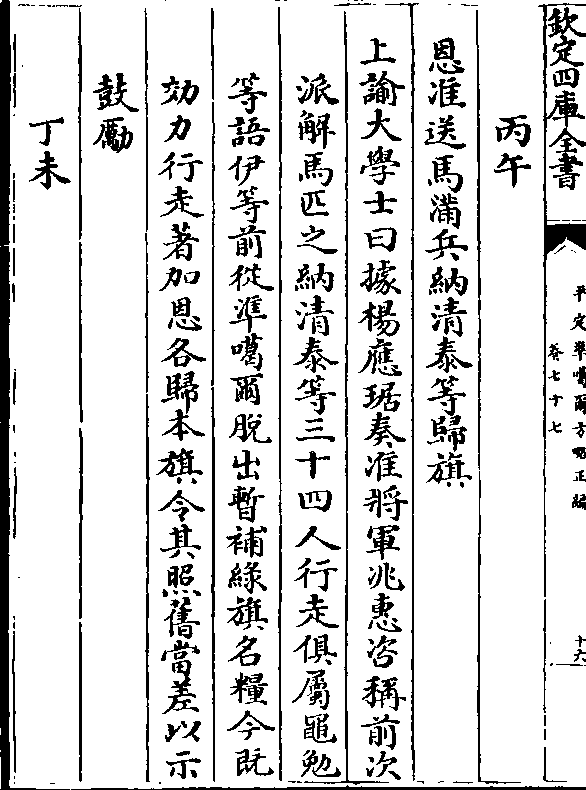 欽定四庫全書
平定準噶爾方略正編
卷七十七
十六
丙午
恩准送馬滿兵納清泰等歸旗
上諭大學士曰據楊應琚奏准將軍兆惠咨稱前次
派解馬匹之納清泰等三十四人行走俱屬黽勉
等語伊等前從準噶爾脫出暫補綠旗名糧今既
効力行走著加恩各歸本旗令其照舊當差以示
鼓勵
丁未